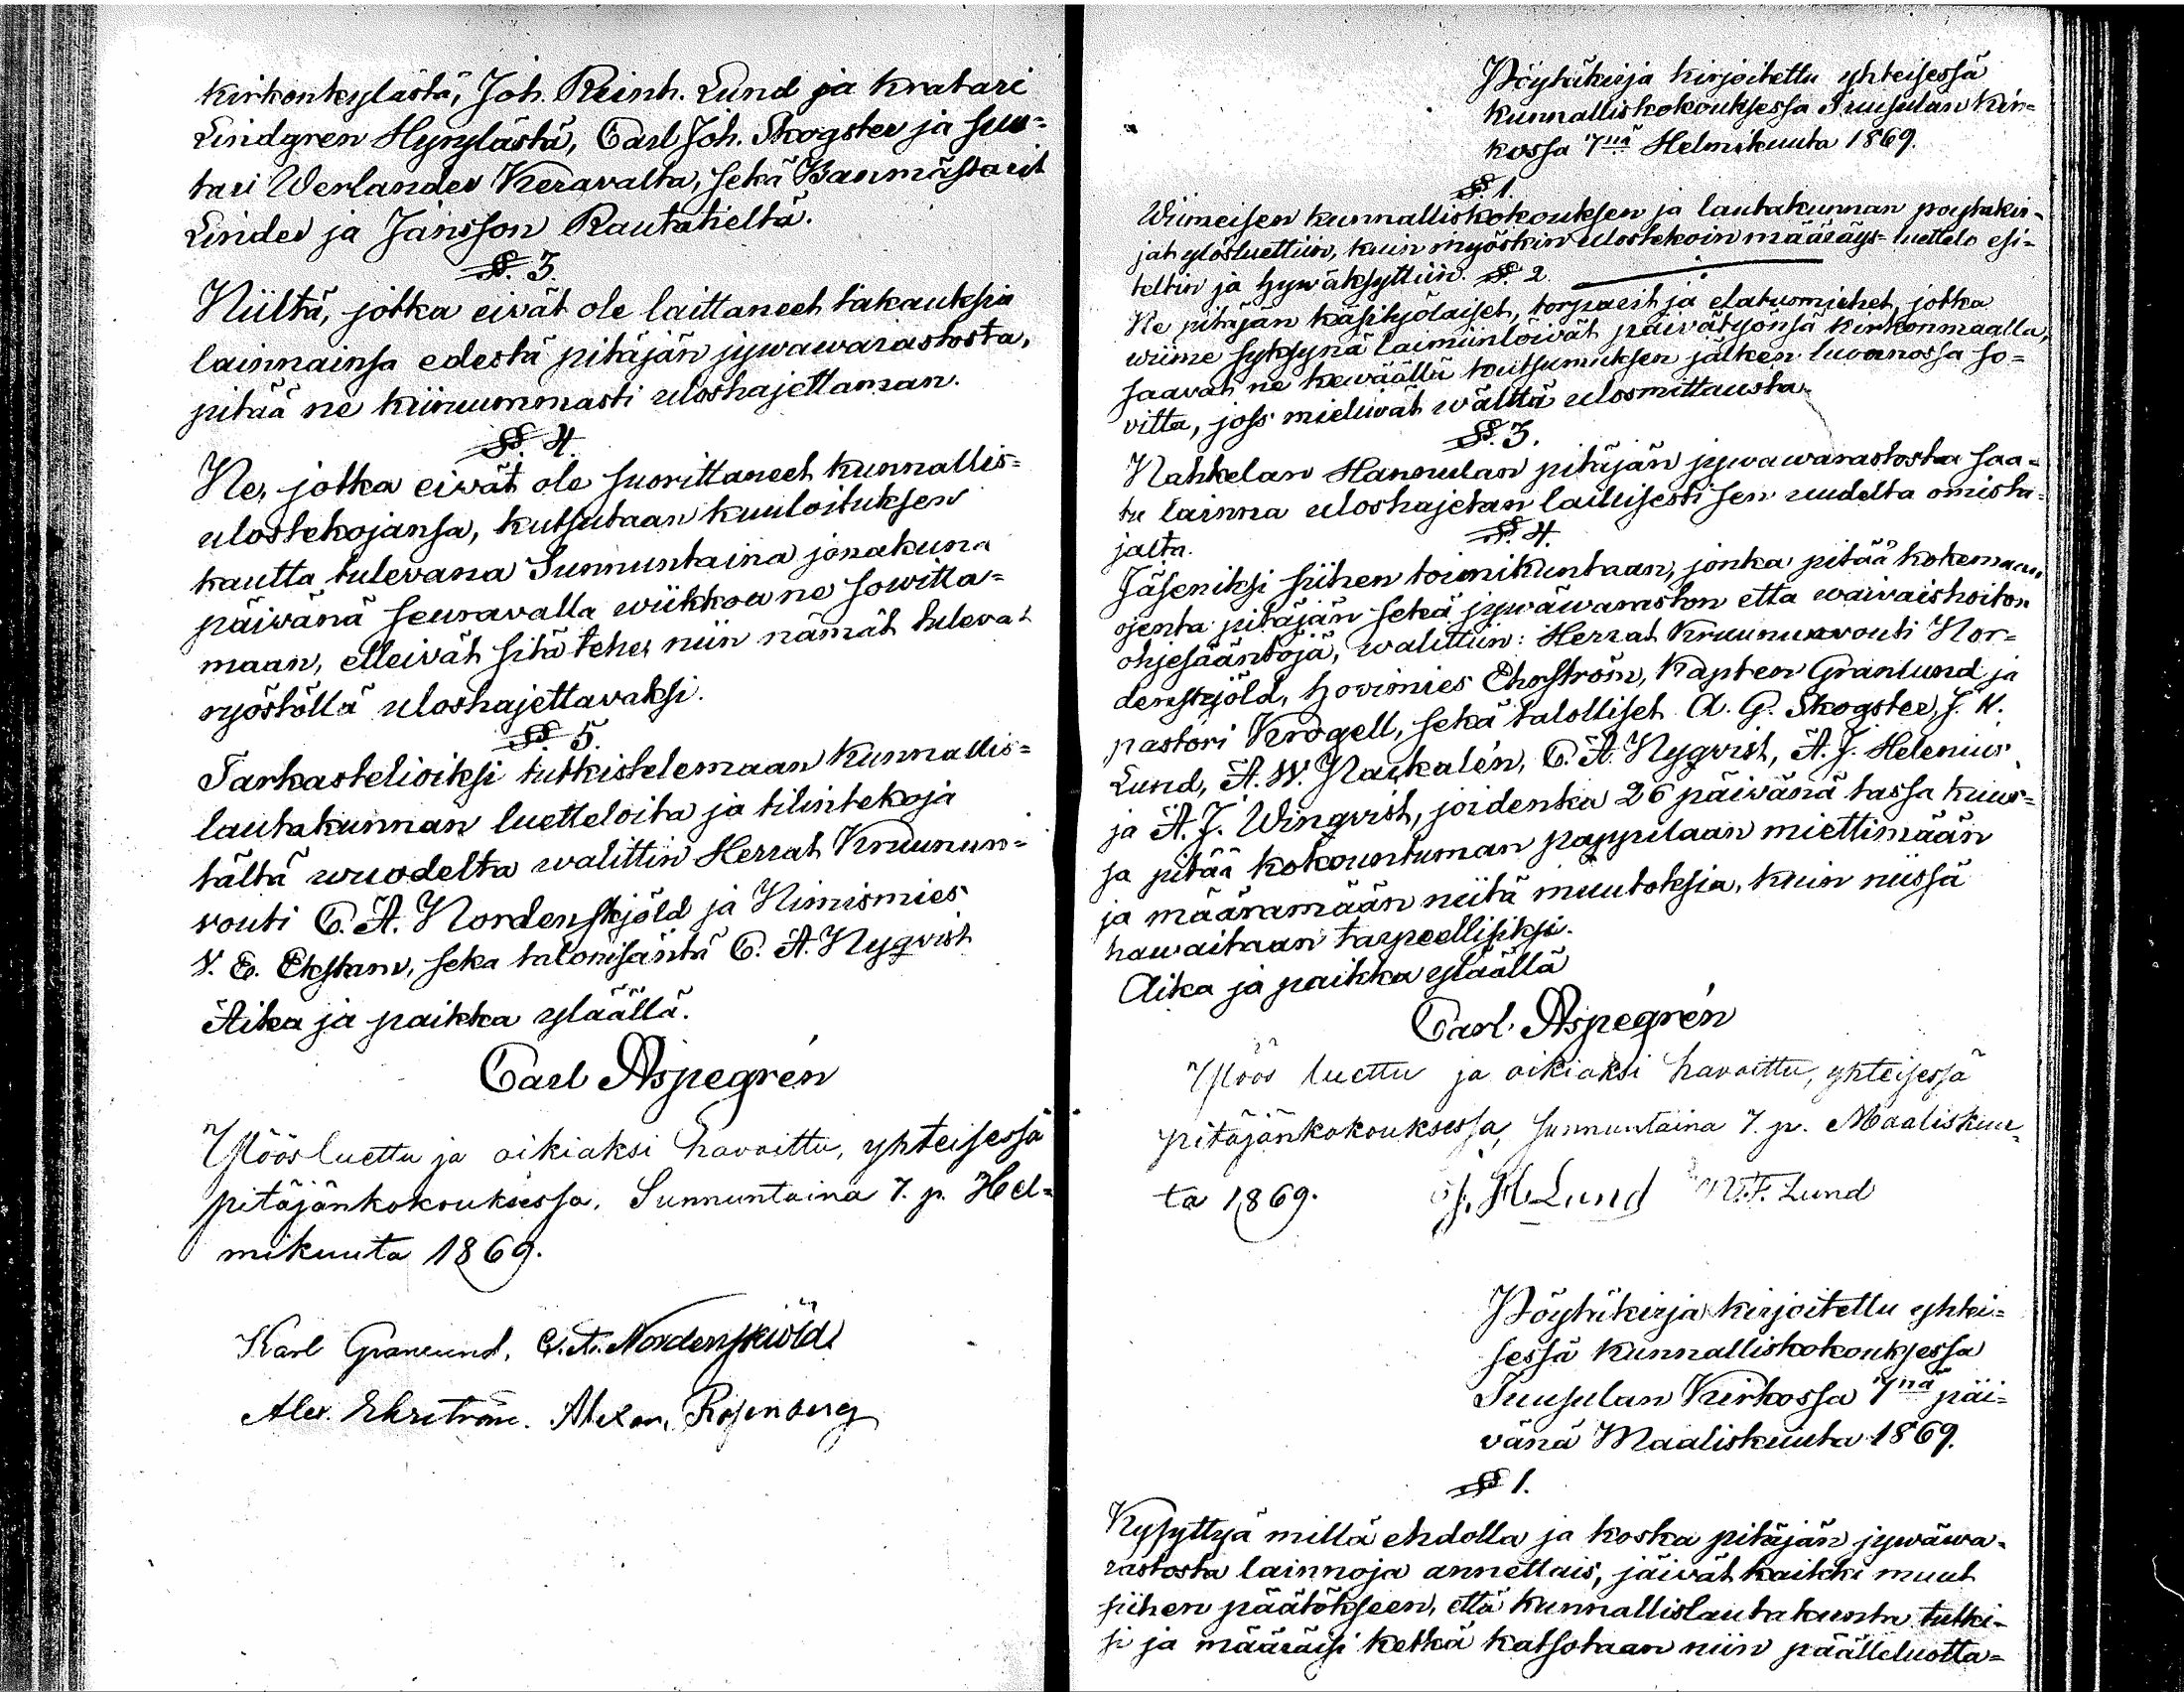 kirkonkylästä, Joh. Reinh. Lund ja kratari
Lindgren Hyrylästä, Carl Joh. Skogster ja suu=
tari Werlander Keravalta, sekä Banmästarit
Linder ja Jansson Rautatieltä.
§. 3.
Niiltä, jotka eivät ole laittaneet takauksia
lainnainsa edestä pitäjän jywawarastosta,
pitää ne kiiruummasti uloshajettaman.
§. 4.
Ne, jotka eivät ole suorittaneet kunnallis=
ulostekojansa, kutsutaan kuuloituksen
kautta tulevana Sunnuntaina jonakuna
päivänä seuravalla wiikkoa ne sowitta=
maan, elleivät sitä tehe, niin nämät tulevat
ryöstöllä uloshajettavaksi.
§. 5.
Tarkastelioiksi tutkistelemaan Kunnallis=
lautakunnan luetteloita ja tilintekoja
tältä wuodelta walittin Herrat Kruunun=
vouti C. A. Nordenskjöld ja Nimismies
V. E. Ekstam, seka talonisäntä C. A. Nyqvist
Aika ja paikka ylläällä.
Carl Aspegrén
Ylöösluettu ja oikiaksi havaittu, yhteisessä
pitäjänkokouksessa, Sunnuntaina 7. p. Hel=
mikuuta 1869.
Karl Granlund, C. A. Nordenskiöld
Alex. Ehrström. Alexan. Rosenberg
Pöytäkirja kirjoitettu yhteisessä
kunnalliskokouksessa Tuusulan Kir=
kossa 7nä Helmikuuta 1869.
§ 1.
Wiimeisen kunnalliskokouksen ja lautakunnan poytakir=
jat ylösluettiin, kuin myöskin ulostekoin määräys=luettelo esi=
teltin ja hywäksyttiin. §. 2.
Ne pitäjän käsityöläiset, torparit ja elatusmiehet, jotka
wiime syksynä laiminlöivät päivätyönsä Kirkonmaalla,
saavat ne kewäällä kutsumuksen jälken luoanossa so=
vitta, joss mielivät wälttä ulosmittausta.
§. 3.
Nahkelan Hannulan pitäjän jywawarastosta saa=
tu lainna uloshajetan laillisesti sen uudelta omista=
jalta.
§. 4.
Jäseniksi siihen toimikuntaan, jonka pitää kokeman
ojenta pitäjän sekä jywäwaraston etta waivaishoiton
ohjesääntöjä, walittiin: Herrat Kruununvouti Nor=
denskjöld, hovimies Ehrström, Kapten Granlund ja
pastori Krogell, sekä talolliset A. G. Skogster, J. H.
Lund, A. W. Naukalén, C. A. Nyqvist, A. J. Helenius
ja A. J. Winqvist, joidenka 26 päivänä tassa kuus=
sa pitää kokountuman pappilaan miettimään
ja määrämään niitä muutoksia, kuin niissä
hawaitaan tarpeellisiksi.
Aika ja paikka ylläällä
Carl Aspegrén
Ylöös luettu ja oikiaksi havaittu, yhteisessä
pitäjänkokouksessa, sunnuntaina 7. p. Maaliskuu=
ta 1869. J. H. Lund F. Lund
Pöytäkirja kirjoitettu yhtei=
sessä Kunnalliskokouksessa
Tuusulan Kirkossa 7nä päi=
vänä Maaliskuuta 1869.
§ 1.
Kysyttyä millä ehdolla ja koska pitäjän jywäwa=
rastosta lainnoja annettais, jäivät kaikki muut
siihen päätökseen, että kunnallislautakunta tutki=
si ja määräisi ketkä katsotaan niin päälleluotta=